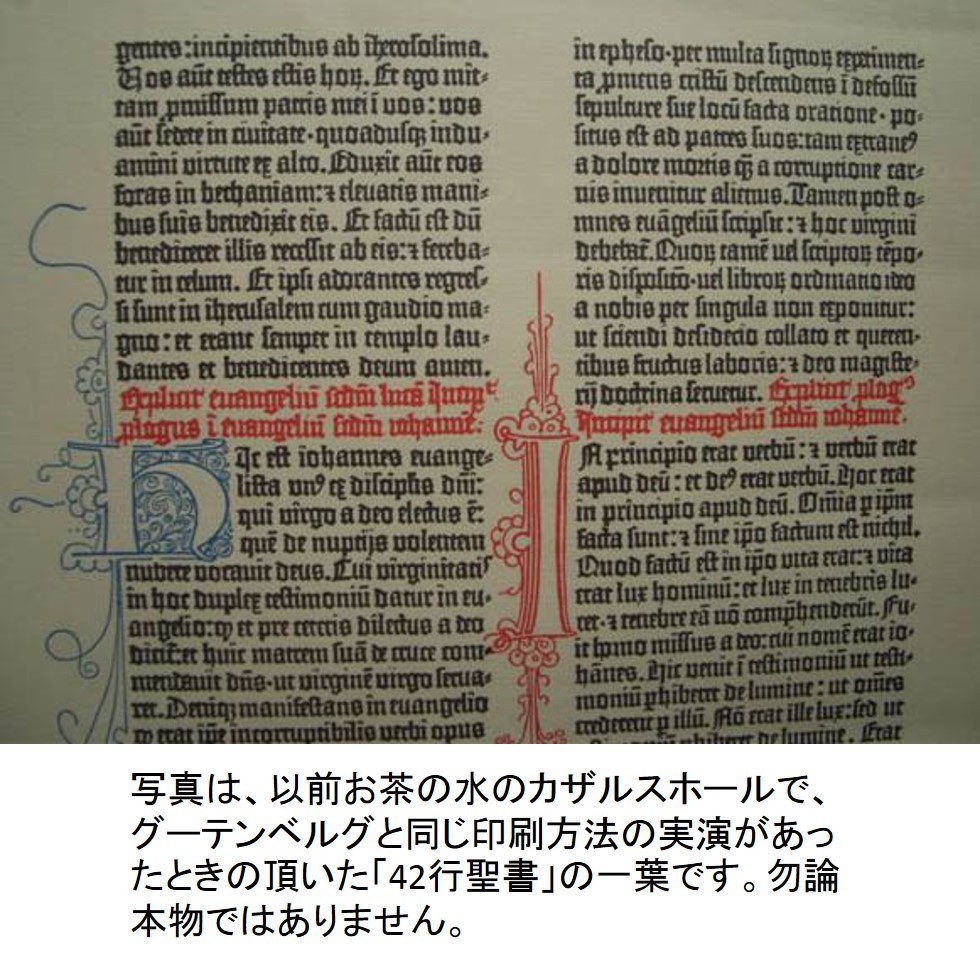 gentes:incipientibus ab iherosolima.
Vos aūt testes estis hoꝝ. Et ego mit-
tam ꝓmissum patris mei ī vos:vos
aūt sedete in civitate·quoadusqꝫ indu-
amini virtute ex alto. Eduxit aūt eos
foras in bethaniam:⁊ elevatis mani-
bus suis benedixit eis. Et factū est dū
benediceret illis recessit ab eis:⁊ fereba-
tur in celum. Et ipsi adorantes regres-
si sunt in iherusalem cum gaudio ma-
gno:et erant semper in templo lau-
dantes et benedicentes deum amen.
Explicit euangeliū scdm lucā
ī euangeliū scdm iohannē.
Hic est iohannes euange-
lista unꝰ ex discipłis dn̄i:
qui virgo a deo electus ē:
quē de nuptijs volentem
nubere vocavit deus. Cui virginitatis
in hoc duplex testimoniū datur in eu-
angelio:ꝙ et pre ceteris dilectus a deo
dicit̄:et huic matrem suā de cruce com-
mendavit dn̄s·ut virginē virgo serva-
ret. Deniqꝫ manifestans in euangelio
ꝙ erat ip̄e incorruptibilis verbi opus
in epheso·per multa signoꝝ experimen-
ta ꝓmens cristū descendens ī defossū
sepulture sue locū facta oratione·po-
situs est ad patres suos:tam extraneꝰ
a dolore mortis q̄ꝫ a corruptione car-
nis invenitur alienus. Tamen post o-
mnes euāgeliū scripsit:⁊ hoc virgini
debebat̄. Quoꝝ tamē vel scriptoꝝ tēpo-
ris disposito·vel libroꝝ ordinatio ideo
a nobis per singula non exponitur:
ut sciendi desiderio collato et queren-
tibus fructus laboris:⁊ deo magiste-
rij doctrina servetur. Explicit plogꝰ
Incipit euangeliū scdm iohannē.
In principio erat verbū:⁊ verbū erat
apud deū:et deꝰ erat verbū. Hoc erat
in principio apud deū. Om̄ia ꝑ ip̄m
facta sunt:⁊ sine ip̄o factum est nichil.
Quod factū est in ip̄o vita erat:⁊ vita
erat lux hominū:et lux in tenebris lu-
cet·⁊ tenebre eā nō compͥhenderūt. Fu-
it homo missus a deo:cui nomē erat io-
hānes. Hic venit ī testimoniū ut testi-
moniū ꝑhiberet de lumine:ut om̄es
crederent ꝑ illū. Nō erat ille lux:sed ut
ꝑhiberet de lumine. Erat
写真は、以前お茶の水のカザルスホールで、
グーテンベルグと同じ印刷方法の実演があっ
たときの頂いた「42行聖書」の一葉です。勿論
本物ではありません。